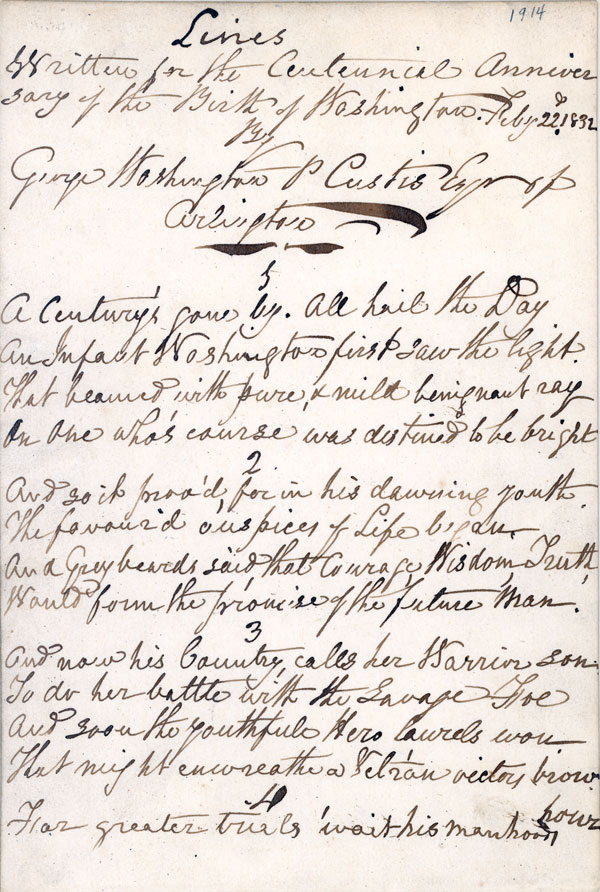 1914
Lines
Written for the Centennial Anniver
sary of the Birth of Washington. Feby 22d, 1832
By
George Washington P Custis Esqr of
Arlington
1
A Century's gone by. All hail the Day
An Infant Washington first saw the light.
That beamed with pure, & mild benignant ray
On One who's course, was destined to be bright
2
And so it prov'd, for in his dawning youth
The favour'd auspices of Life began.
And Greybeards said, that Courage, Wisdom, Truth,
Would form the promise of the future Man.
3
And now his Country, calls her Warrior son.
To do her battle with the Savage Foe
And soon the youthfull Hero laurels won
That might enwreathe a Vet'ran victors brow
4
Far greater trials 'wait his manhoods
hour